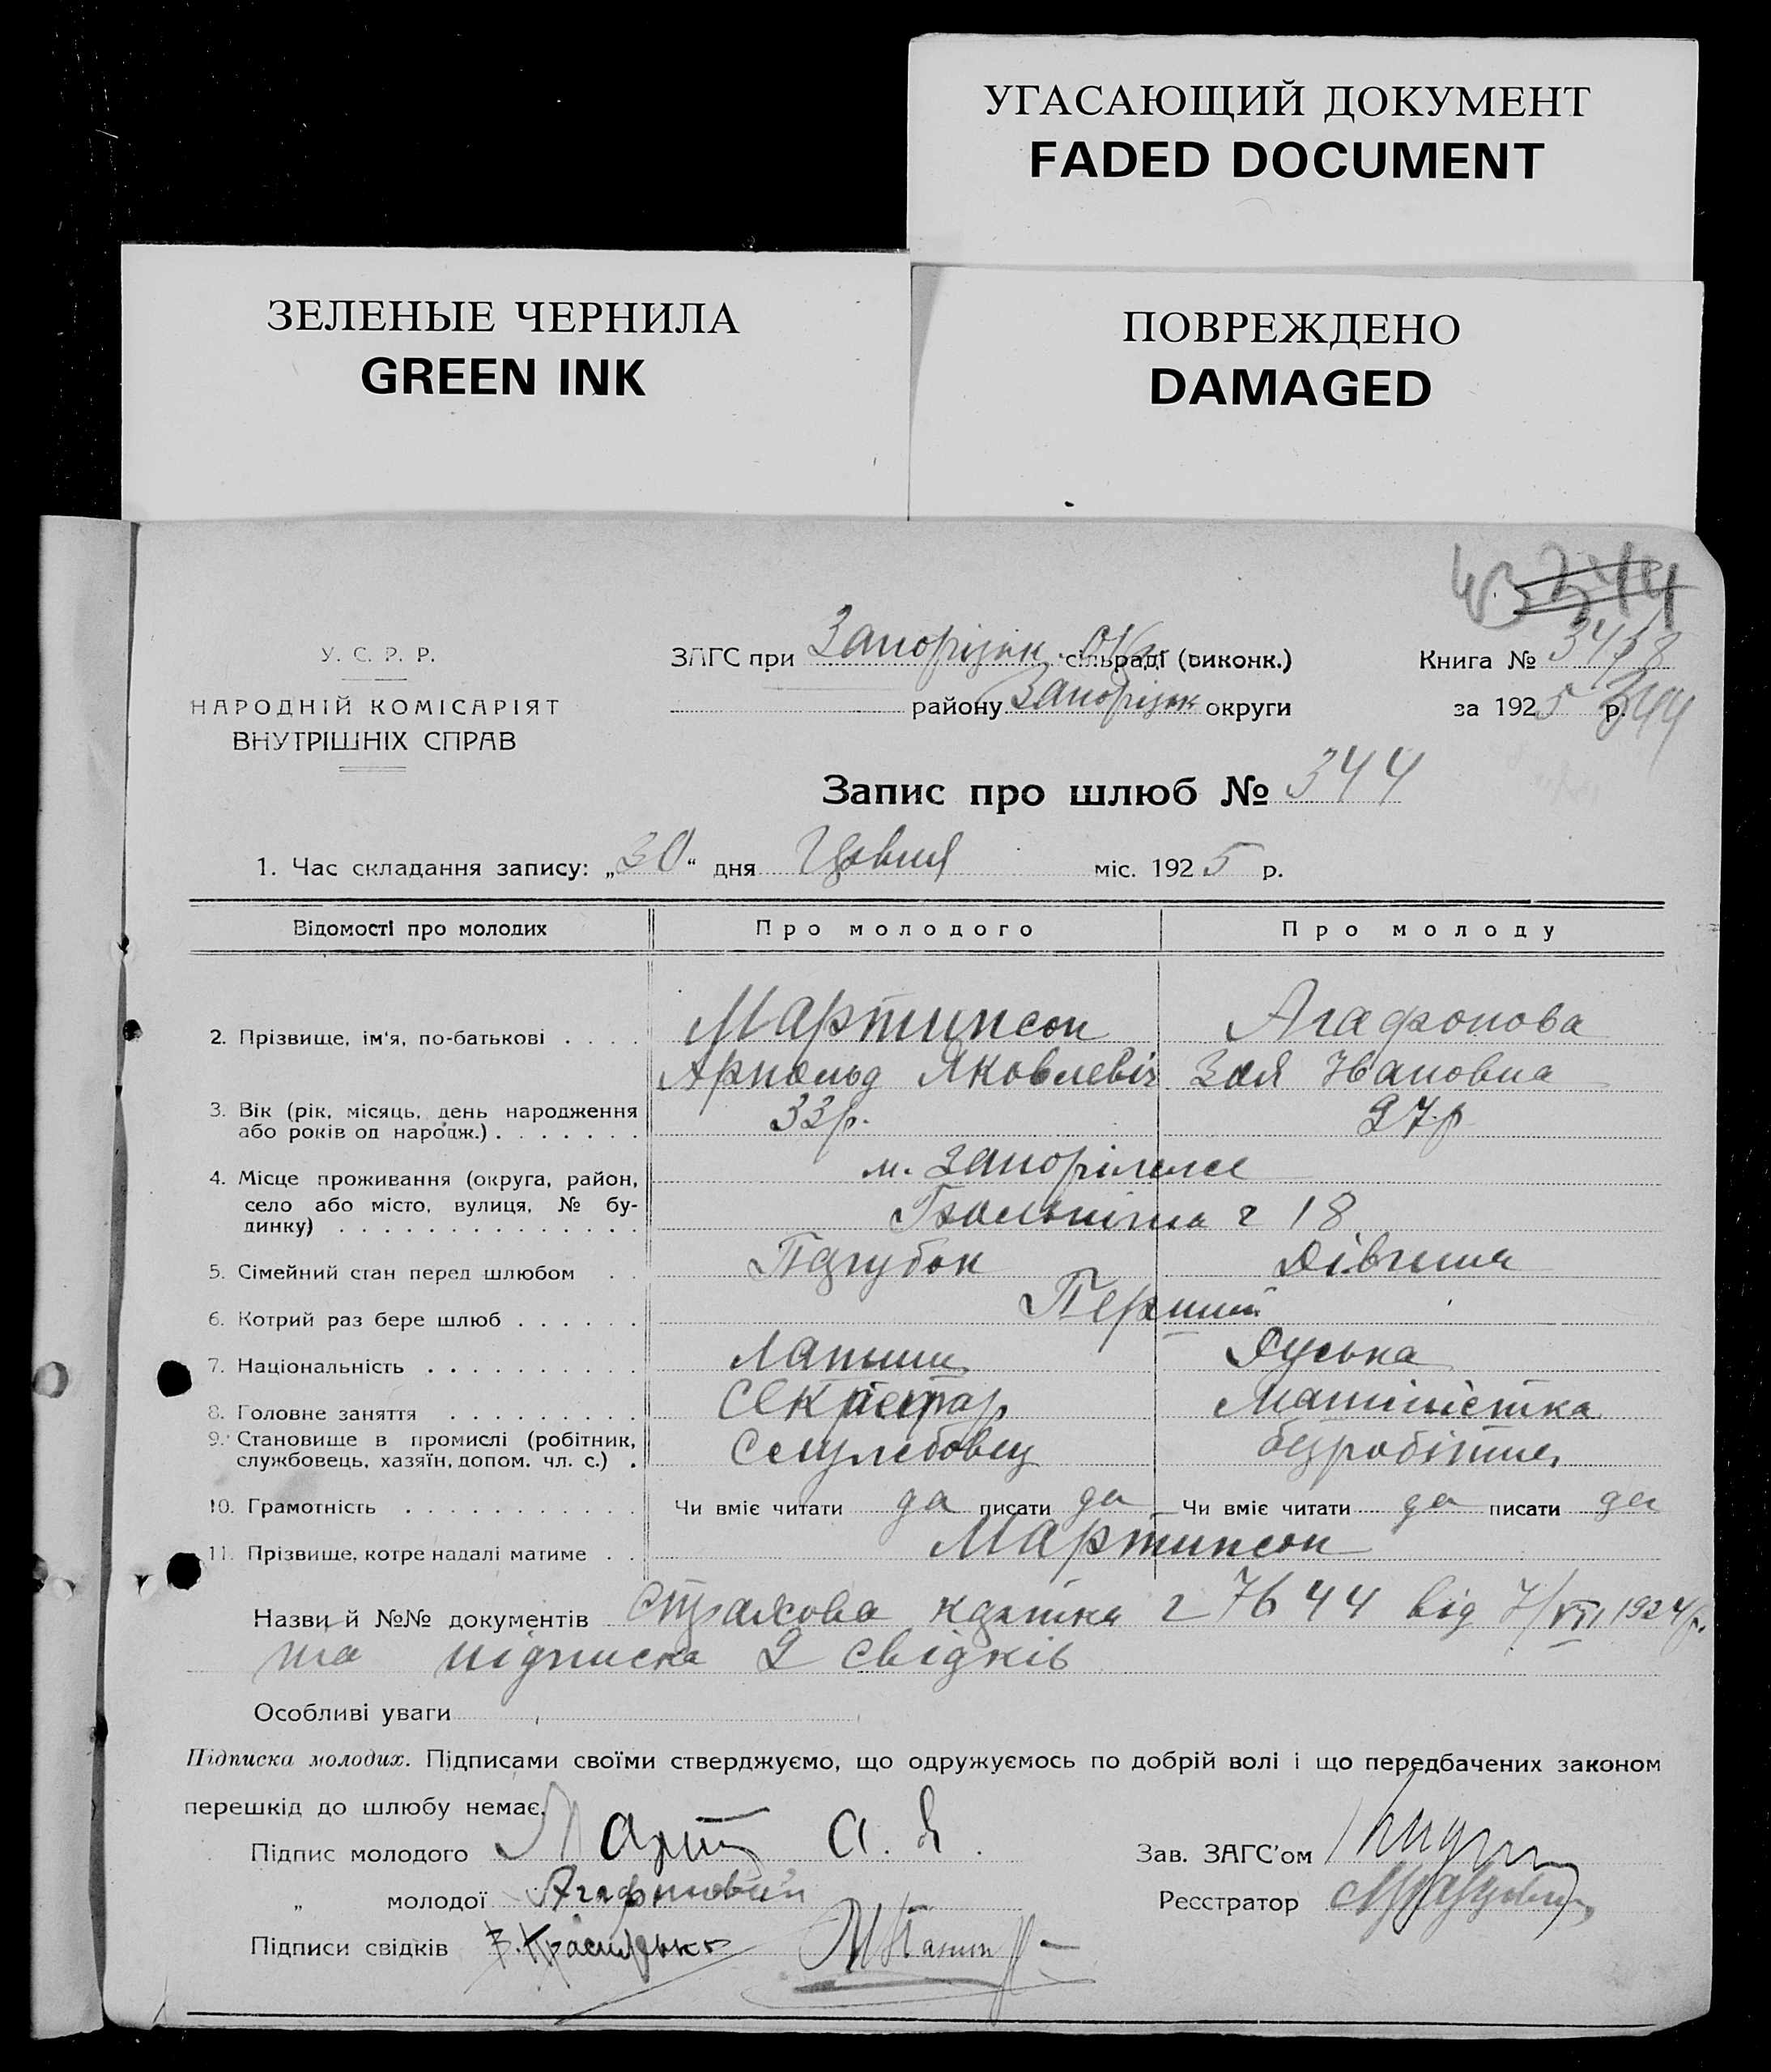 УГАСАЮЩИЙ ДОКУМЕНТ
FADED DOCUMENT
ЗЕЛЕНЫЕ ЧЕРНИЛА
GREEN INK
ПОВРЕЖДЕНО
DAMAGED
43 344
У. С. Р. Р.
НАРОДНІЙ КОМІСАРІЯТ
ВНУТРІШНІХ СПРАВ
ЗАГС при Запорізьк. сільраді (виконк.)
району Запорізьк округи
Книга №
за 1925 р. 344
Запис про шлюб № 344
1. Час складання запису: „30" дня міс. 1925 р.
Відомості про молодих Про молодого Про молоду
2. Прізвище, ім'я, по-батькові . . . . Мартинсон Агафонова
Арнольд Яковлевіч Зоя Івановна
3. Вік (рік, місяць, день народження
або років од народж.) . . . . . . . 33р. 27р
4. Місце проживання (округа, район,
село або місто, вулиця, № бу-
динку) . . . . . . . . . . . . . . м. Запоріжжє
18
5. Сімейний стан перед шлюбом . . Парубок Дівчина
6. Котрий раз бере шлюб . . . . . . Перший
7. Національність . . . . . . . . . . Латиш Руська
8. Головне заняття . . . . . . . . . Секретар Машиністка
9. Становище в промислі (робітник,
службовець, хазяїн, допом. чл. с.) . Службовец безробітна
10. Грамотність . . . . . . . . . . . Чи вміє читати да писати да Чи вміє читати да писати да
11. Прізвище, котре надалі матиме . . Мартинсон
Назви й №№ документів Страхова картка ч 7644 від 7/VII 1924р.
та підписка 2 свідків
Особливі уваги
Підписка молодих. Підписами своїми стверджуємо, що одружуємось по добрій волі і що передбачених законом
перешкід до шлюбу немає.
Підпис молодого Март А. Я.
Зав. ЗАГС'ом
„ молодої Агафонова
Реєстратор
Підписи свідків